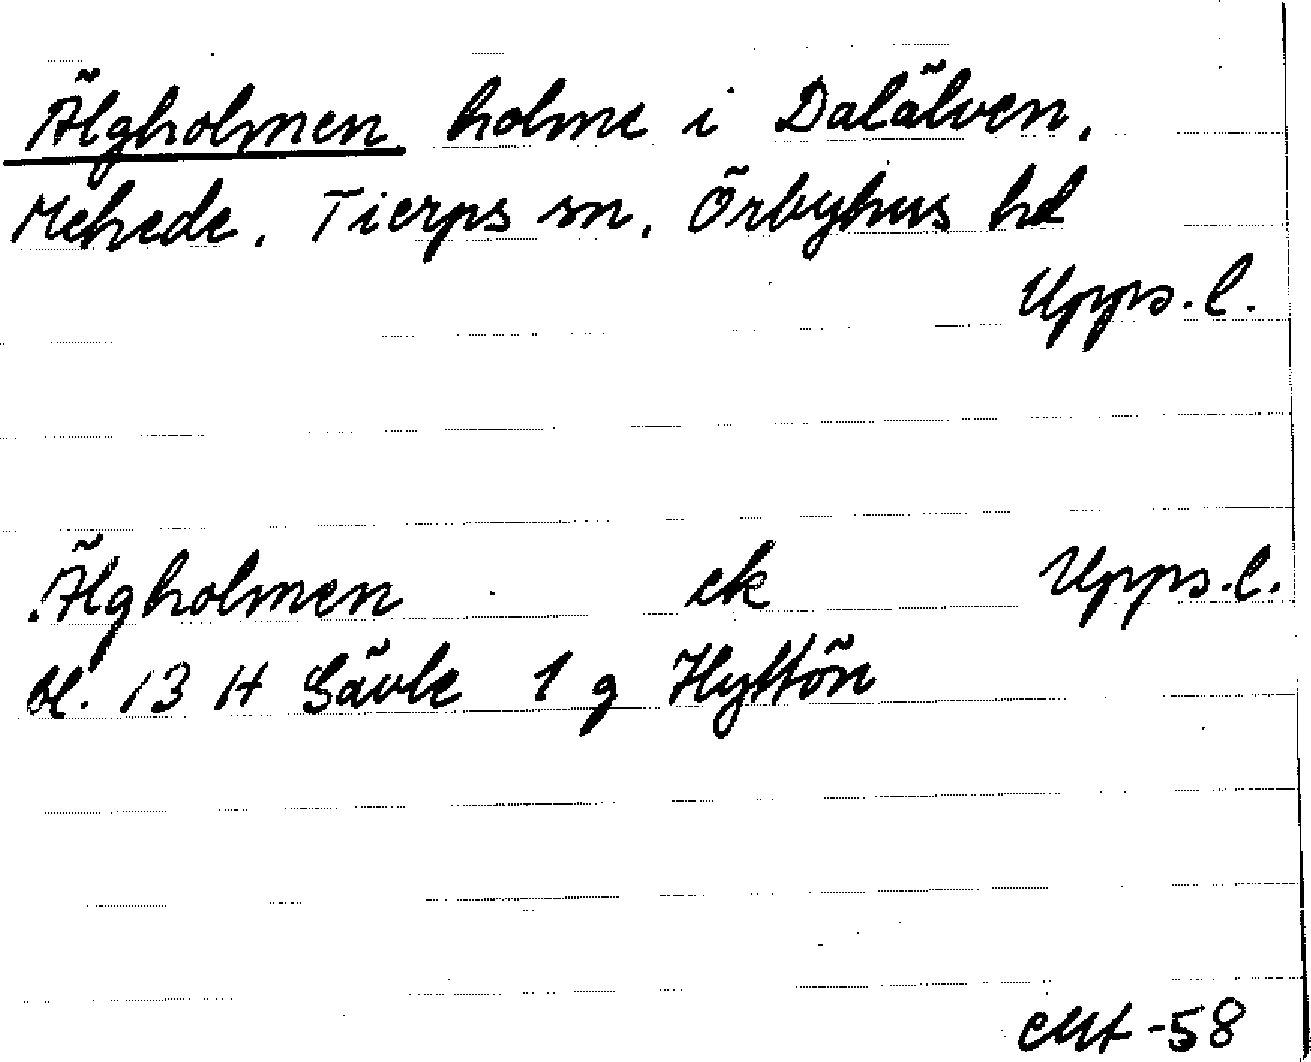 Älgholmen holme i Dalälven,
Mehede, Tierps sn, Örbyhus hd
Upps. l.
Älgholmen ek Upps. l.
bl. 13 H Gävle 1 g Hyttön
-58